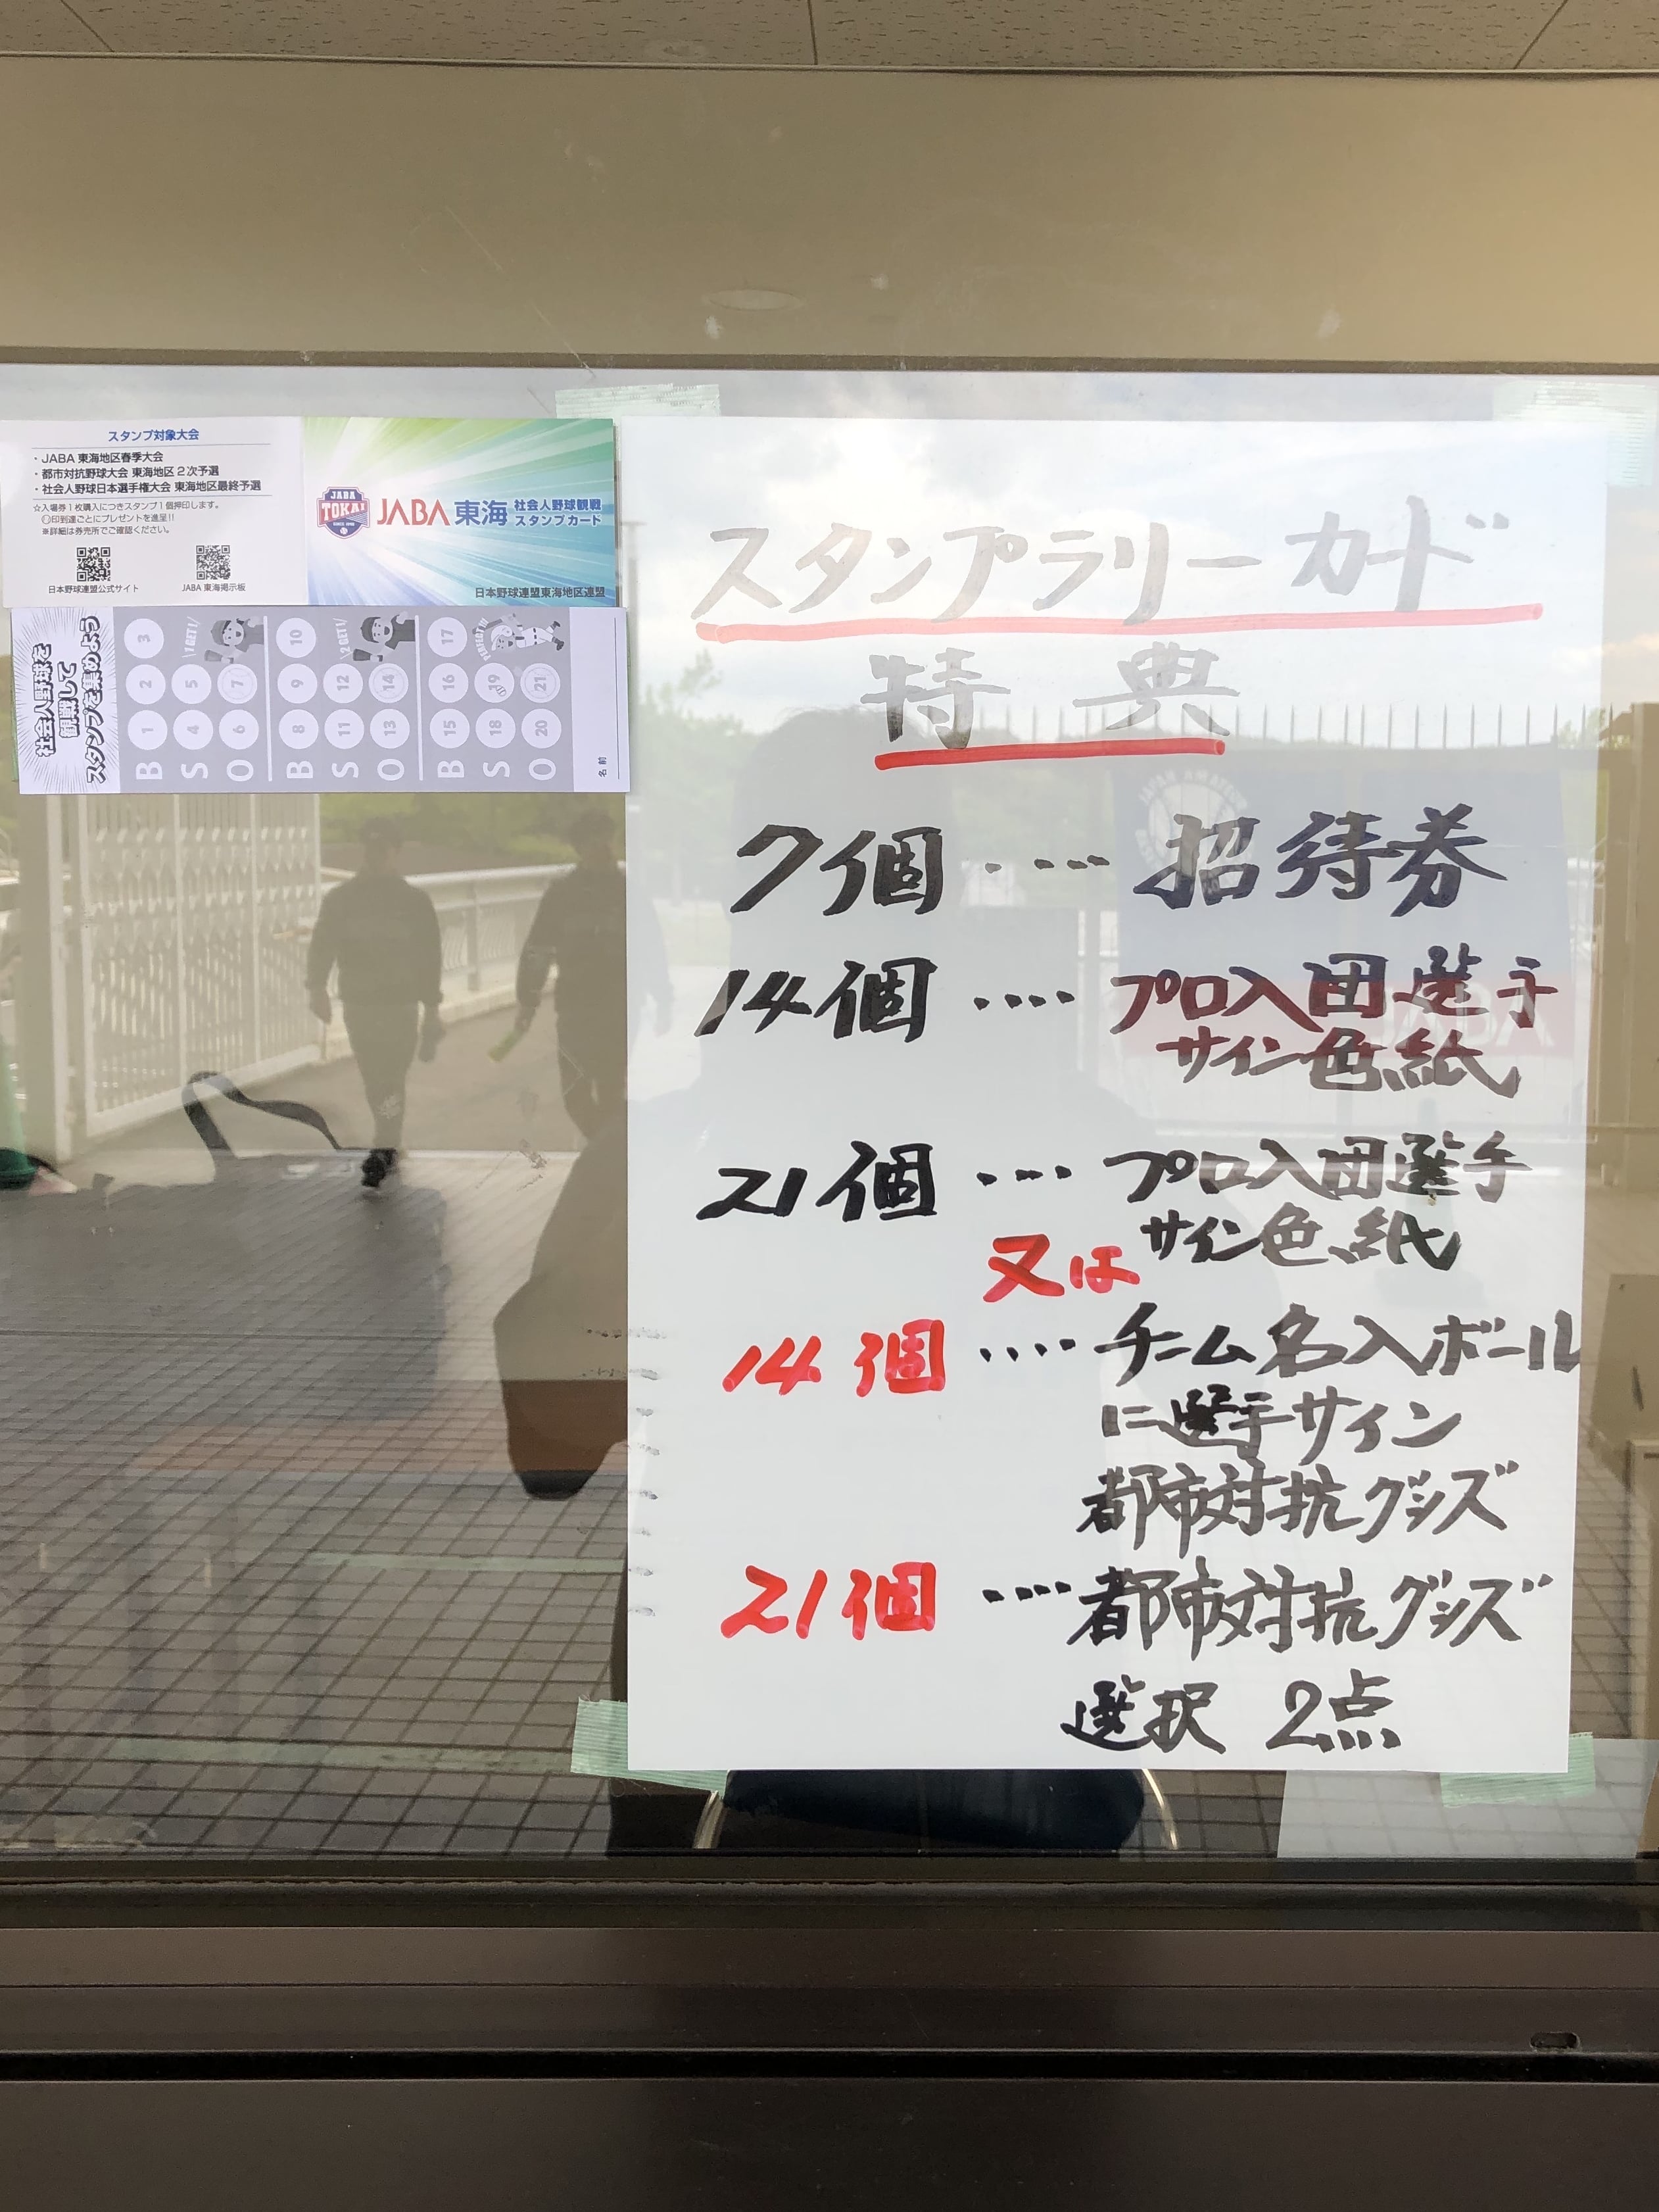 スタンプ対象大会
・JABA 東海地区春季大会
・都市対抗野球大会 東海地区2次予選
・社会人野球日本選手権大会 東海地区最終予選
☆入場券1枚購入につきスタンプ1個押印します。
印到達ごとにプレゼントを進呈!!
※詳細は券売所でご確認ください。
日本野球連盟公式サイト
JABA 東海掲示板
JABA
TOKAI
JABA 東海
社会人野球観戦
スタンプカード
日本野球連盟東海地区連盟
社会人野球を
観戦して
スタンプを集めよう
B 1 2 3
S 4 5 1GET!
O 6 7
B 8 9 10
S 11 12 2GET!
O 13 14
B 15 16 17
S 18 19 PERFECT!!
O 20 21
名前
スタンプラリーカード
特典
7個‥‥招待券
14個‥‥プロ入団選手
サイン色紙
21個‥‥プロ入団選手
サイン色紙
又は
14個‥‥チーム名入ボール
に選手サイン
都市対抗グッズ
21個‥‥都市対抗グッズ
選択 2点